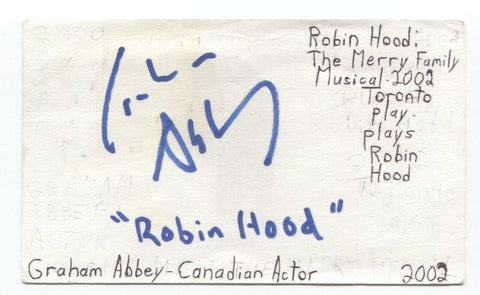 Robin Hood:
The Merry Family
Musical-2002
Toronto
play-
plays
Robin
Hood
"Robin Hood"
Graham Abbey-Canadian Actor 2002